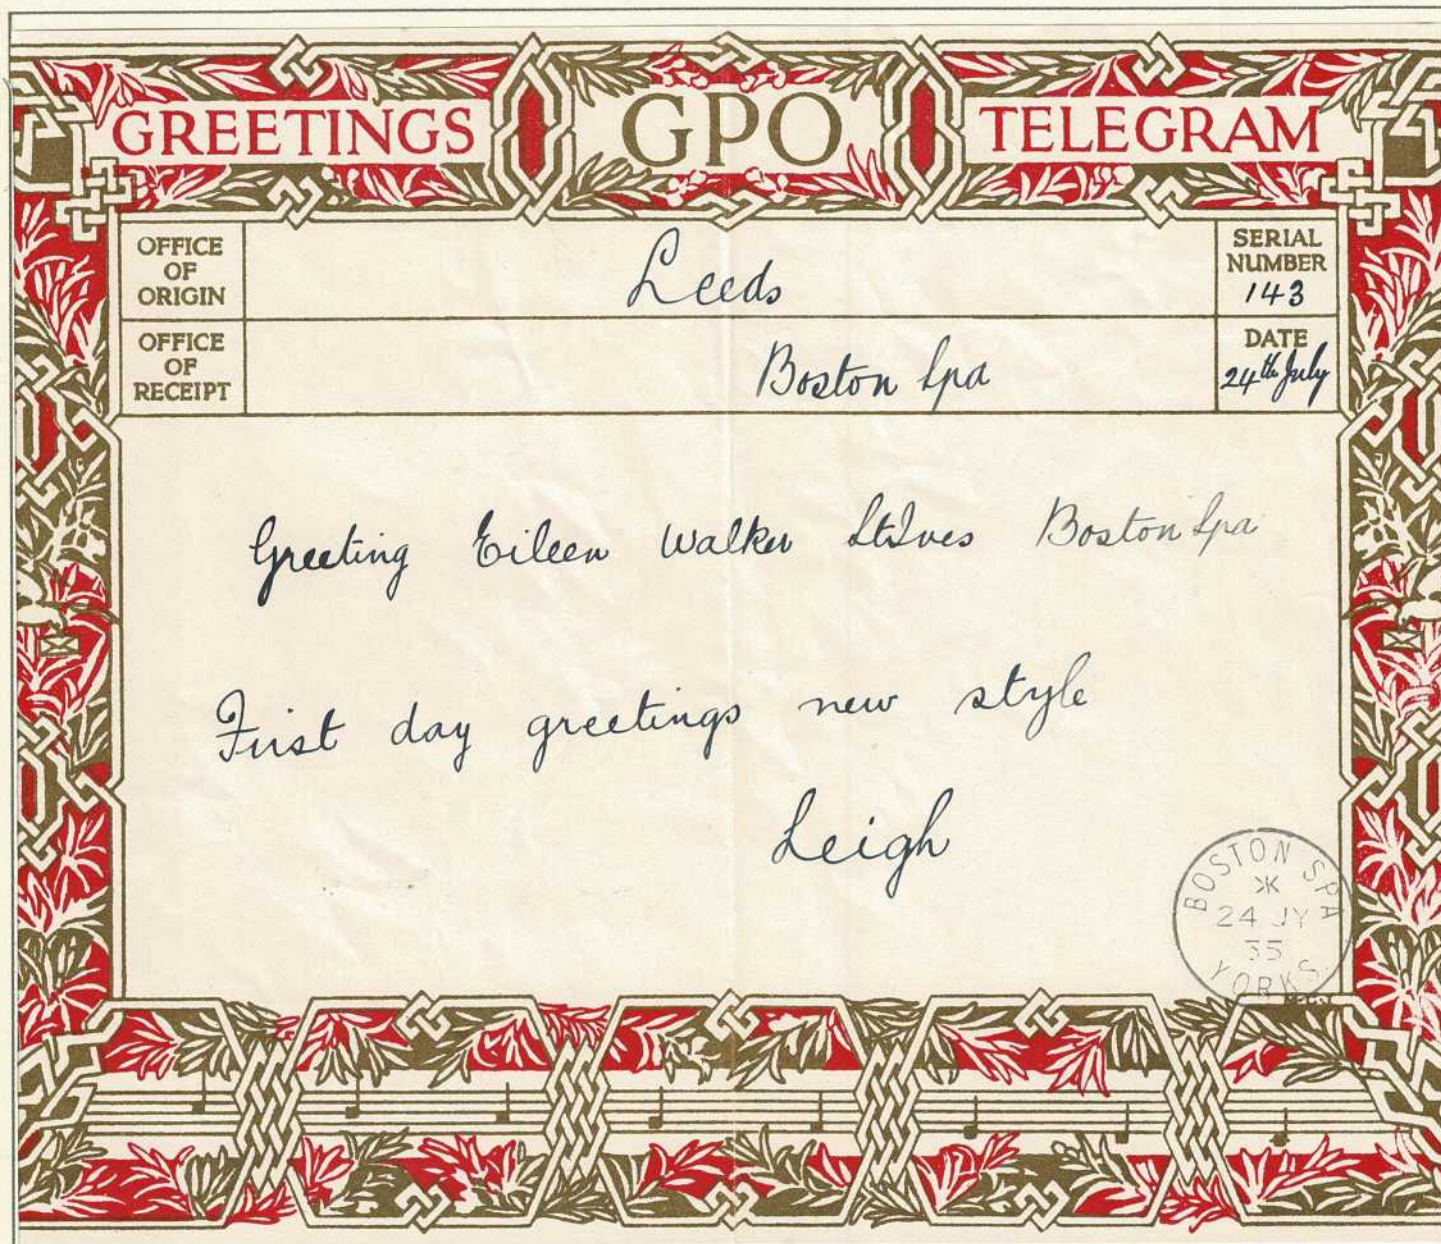 GREETINGS GPO TELEGRAM
OFFICE OF ORIGIN
Leeds
SERIAL NUMBER
143
OFFICE OF RECEIPT
Boston Spa
DATE
24th July
Greeting Eileen Walker StIves Boston Spa
First day greetings new style
Leigh
BOSTON SPA
24 JY
35
YORKS.